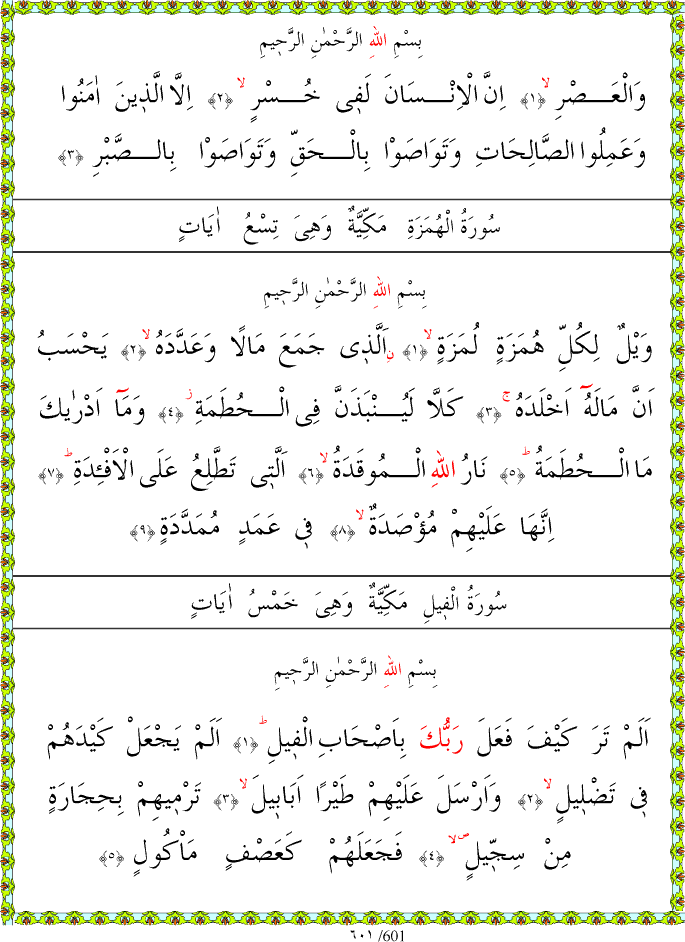 بِسْمِ اللهِ الرَّحْمٰنِ الرَّحٖيمِ
وَالْعَـــصْرِۙ ﴿١﴾ اِنَّ الْاِنْـــسَانَ لَفٖى خُـــسْرٍۙ ﴿٢﴾ اِلَّا الَّذٖينَ اٰمَنُوا
وَعَمِلُوا الصَّالِحَاتِ وَتَوَاصَوْا بِالْـــحَقِّ وَتَوَاصَوْا بِالـــصَّبْرِ ﴿٣﴾
سُورَةُ الْهُمَزَةِ مَكِّيَّةٌ وَهِىَ تِسْعُ اٰيَاتٍ
بِسْمِ اللهِ الرَّحْمٰنِ الرَّحٖيمِ
وَيْلٌ لِكُلِّ هُمَزَةٍ لُمَزَةٍۙ ﴿١﴾ نِ اَلَّذٖى جَمَعَ مَالًا وَعَدَّدَهُۙ ﴿٢﴾ يَحْسَبُ
اَنَّ مَالَهُٓ اَخْلَدَهُۚ ﴿٣﴾ كَلَّا لَيُنْبَذَنَّ فِى الْـــحُطَمَةِؗ ﴿٤﴾ وَمَٓا اَدْرٰيكَ
مَا الْـــحُطَمَةُؕ ﴿٥﴾ نَارُ اللهِ الْـــمُوقَدَةُۙ ﴿٦﴾ اَلَّتٖى تَطَّلِعُ عَلَى الْاَفْئِدَةِؕ ﴿٧﴾
اِنَّهَا عَلَيْهِمْ مُؤْصَدَةٌۙ ﴿٨﴾ فٖى عَمَدٍ مُمَدَّدَةٍ ﴿٩﴾
سُورَةُ الْفٖيلِ مَكِّيَّةٌ وَهِىَ خَمْسُ اٰيَاتٍ
بِسْمِ اللهِ الرَّحْمٰنِ الرَّحٖيمِ
اَلَمْ تَرَ كَيْفَ فَعَلَ رَبُّكَ بِاَصْحَابِ الْفٖيلِؕ ﴿١﴾ اَلَمْ يَجْعَلْ كَيْدَهُمْ
فٖى تَضْلٖيلٍۙ ﴿٢﴾ وَاَرْسَلَ عَلَيْهِمْ طَيْرًا اَبَابٖيلَۙ ﴿٣﴾ تَرْمٖيهِمْ بِحِجَارَةٍ
مِنْ سِجّٖيلٍۙۖ ﴿٤﴾ فَجَعَلَهُمْ كَعَصْفٍ مَاْكُولٍ ﴿٥﴾
٦٠١ /601